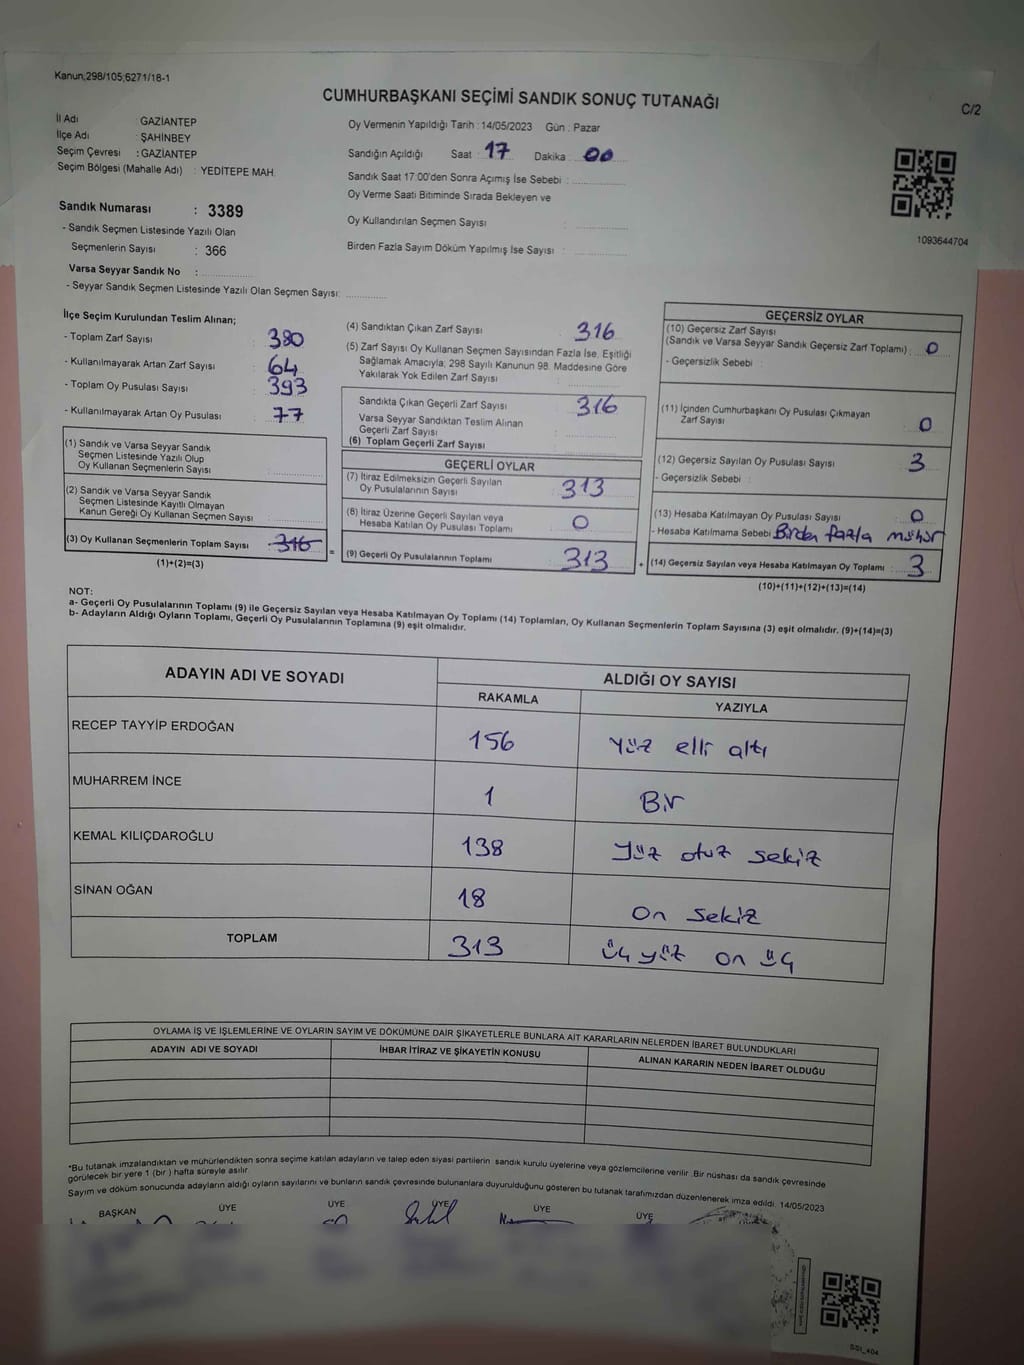 Kanun;298/105;6271/18-1
CUMHURBAŞKANI SEÇİMİ SANDIK SONUÇ TUTANAĞI
C/2
İl Adı : GAZİANTEP
İlçe Adı : ŞAHİNBEY
Seçim Çevresi : GAZİANTEP
Seçim Bölgesi (Mahalle Adı) : YEDİTEPE MAH.
Sandık Numarası : 3389
- Sandık Seçmen Listesinde Yazılı Olan
Seçmenlerin Sayısı : 366
Varsa Seyyar Sandık No :
- Seyyar Sandık Seçmen Listesinde Yazılı Olan Seçmen Sayısı:
Oy Vermenin Yapıldığı Tarih : 14/05/2023 Gün : Pazar
Sandığın Açıldığı Saat : 17 Dakika : 00
Sandık Saat 17:00'den Sonra Açımış İse Sebebi :
Oy Verme Saati Bitiminde Sırada Bekleyen ve
Oy Kullandırılan Seçmen Sayısı :
Birden Fazla Sayım Döküm Yapılmış İse Sayısı :
1093644704
İlçe Seçim Kurulundan Teslim Alınan;
- Toplam Zarf Sayısı : 380
- Kullanılmayarak Artan Zarf Sayısı : 64
- Toplam Oy Pusulası Sayısı : 393
- Kullanılmayarak Artan Oy Pusulası : 77
(1) Sandık ve Varsa Seyyar Sandık
Seçmen Listesinde Yazılı Olup
Oy Kullanan Seçmenlerin Sayısı :
(2) Sandık ve Varsa Seyyar Sandık
Seçmen Listesinde Kayıtlı Olmayan
Kanun Gereği Oy Kullanan Seçmen Sayısı :
(3) Oy Kullanan Seçmenlerin Toplam Sayısı : 316
(1)+(2)=(3)
=
(4) Sandıktan Çıkan Zarf Sayısı : 316
(5) Zarf Sayısı Oy Kullanan Seçmen Sayısından Fazla İse, Eşitliği
Sağlamak Amacıyla; 298 Sayılı Kanunun 98. Maddesine Göre
Yakılarak Yok Edilen Zarf Sayısı :
Sandıkta Çıkan Geçerli Zarf Sayısı : 316
Varsa Seyyar Sandıktan Teslim Alınan
Geçerli Zarf Sayısı :
(6) Toplam Geçerli Zarf Sayısı :
GEÇERLİ OYLAR
(7) İtiraz Edilmeksizin Geçerli Sayılan
Oy Pusulalarının Sayısı : 313
(8) İtiraz Üzerine Geçerli Sayılan veya
Hesaba Katılan Oy Pusulası Toplamı : 0
(9) Geçerli Oy Pusulalarının Toplamı : 313
+
GEÇERSİZ OYLAR
(10) Geçersiz Zarf Sayısı
(Sandık ve Varsa Seyyar Sandık Geçersiz Zarf Toplamı) : 0
- Geçersizlik Sebebi :
(11) İçinden Cumhurbaşkanı Oy Pusulası Çıkmayan
Zarf Sayısı : 0
(12) Geçersiz Sayılan Oy Pusulası Sayısı : 3
- Geçersizlik Sebebi :
(13) Hesaba Katılmayan Oy Pusulası Sayısı : 0
- Hesaba Katılmama Sebebi : Birden fazla mühür
(14) Geçersiz Sayılan veya Hesaba Katılmayan Oy Toplamı : 3
(10)+(11)+(12)+(13)=(14)
NOT:
a- Geçerli Oy Pusulalarının Toplamı (9) ile Geçersiz Sayılan veya Hesaba Katılmayan Oy Toplamı (14) Toplamları, Oy Kullanan Seçmenlerin Toplam Sayısına (3) eşit olmalıdır. (9)+(14)=(3)
b- Adayların Aldığı Oyların Toplamı, Geçerli Oy Pusulalarının Toplamına (9) eşit olmalıdır.
ADAYIN ADI VE SOYADI
ALDIĞI OY SAYISI
RAKAMLA YAZIYLA
RECEP TAYYİP ERDOĞAN 156 yüz elli altı
MUHARREM İNCE 1 Bir
KEMAL KILIÇDAROĞLU 138 yüz otuz sekiz
SİNAN OĞAN 18 On sekiz
TOPLAM 313 üç yüz on üç
OYLAMA İŞ VE İŞLEMLERİNE VE OYLARIN SAYIM VE DÖKÜMÜNE DAİR ŞİKAYETLERLE BUNLARA AİT KARARLARIN NELERDEN İBARET BULUNDUKLARI
ADAYIN ADI VE SOYADI İHBAR İTİRAZ VE ŞİKAYETİN KONUSU ALINAN KARARIN NEDEN İBARET OLDUĞU
*Bu tutanak imzalandıktan ve mühürlendikten sonra seçime katılan adayların ve talep eden siyasi partilerin sandık kurulu üyelerine veya gözlemcilerine verilir. Bir nüshası da sandık çevresinde
görülecek bir yere 1 (bir) hafta süreyle asılır.
Sayım ve döküm sonucunda adayların aldığı oyların sayılarını ve bunların sandık çevresinde bulunanlara duyurulduğunu gösteren bu tutanak tarafımızdan düzenlenerek imza edildi. 14/05/2023
BAŞKAN ÜYE ÜYE ÜYE ÜYE ÜYE